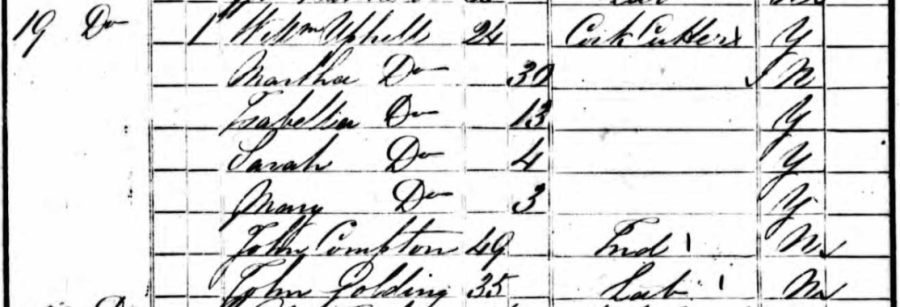 19 Do 1 Willm Uphill 24 Cork Cutter Y
Martha Do 30 N
Isabella Do 13 Y
Sarah Do 4 Y
Mary Do 3 Y
John Compton 49 Ind N
John Golding 35 Lab N